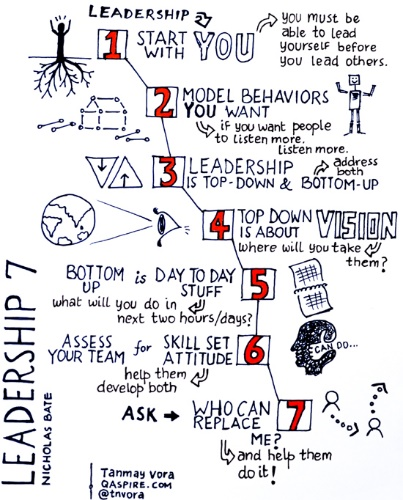 LEADERSHIP
1 START WITH YOU
you must be
able to lead
yourself before
you lead others.
2 MODEL BEHAVIORS
YOU WANT
if you want people
to listen more.
listen more.
3 LEADERSHIP
IS TOP-DOWN & BOTTOM-UP
address
both
4 TOP DOWN
IS ABOUT VISION
where will you take
them?
5 BOTTOM UP is DAY TO DAY
STUFF
what will you do in
next two hours/days?
6 ASSESS YOUR TEAM for SKILL SET
ATTITUDE
help them
develop both
I CAN DO...
7 ASK → WHO CAN
REPLACE
ME?
and help them
do it!
LEADERSHIP 7
NICHOLAS BATE
Tanmay Vora
QASPIRE.COM
@tnvora